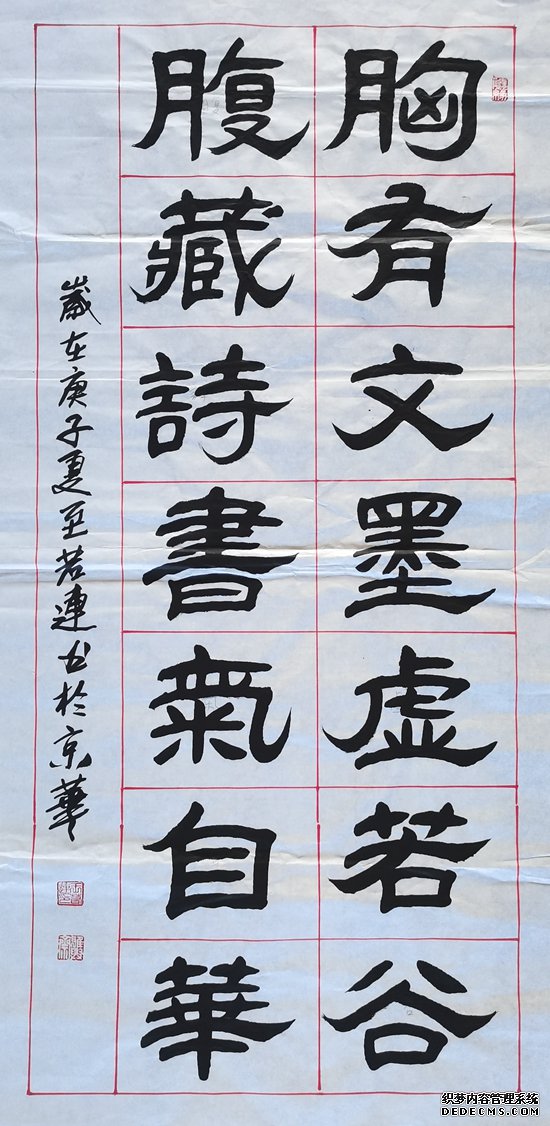 胸有文墨虚若谷
腹藏詩書氣自華
歲在庚子夏至若連书於京華
织梦内容管理系统
DEDECMS.COM